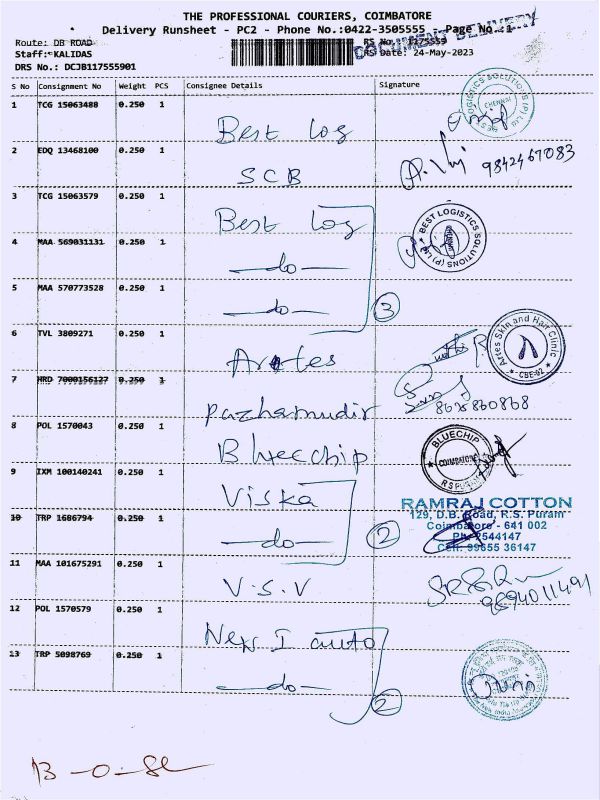 THE PROFESSIONAL COURIERS, COIMBATORE
Delivery Runsheet - PC2 - Phone No.:0422-3505555 - Page No.:1
Route: DB ROAD
Staff:KALIDAS
DRS No.: DCJB117555901
RS Date: 24-May-2023
DOCUMENT DELIVERY
S No Consignment No Weight PCS Consignee Details Signature
1 TCG 15063488 0.250 1
Best Log
2 EDQ 13468100 0.250 1
SCB
9842467083
3 TCG 15063579 0.250 1
Best Log
BEST LOGISTICS SOLUTIONS (P) Ltd
4 MAA 569031131 0.250 1
-do-
5 MAA 570773528 0.250 1
-do-
3
6 TVL 3809271 0.250 1
Artes
Artes Skin and Hair Clinic
CBE-02
7 HRD 7000156127 0.250 1
Pazhamudir
8 POL 1570043 0.250 1
Bluechip
BLUECHIP
COIMBATORE
9 IXM 100140241 0.250 1
Viska
RAMRAJ COTTON
129, D.B. Road, R.S. Puram
Coimbatore - 641 002
Ph: 2544147
Cell: 99655 36147
10 TRP 1686794 0.250 1
-do-
2
11 MAA 101675291 0.250 1
V.S.V
9894011491
12 POL 1570579 0.250 1
New I auto
13 TRP 5098769 0.250 1
-do-
2